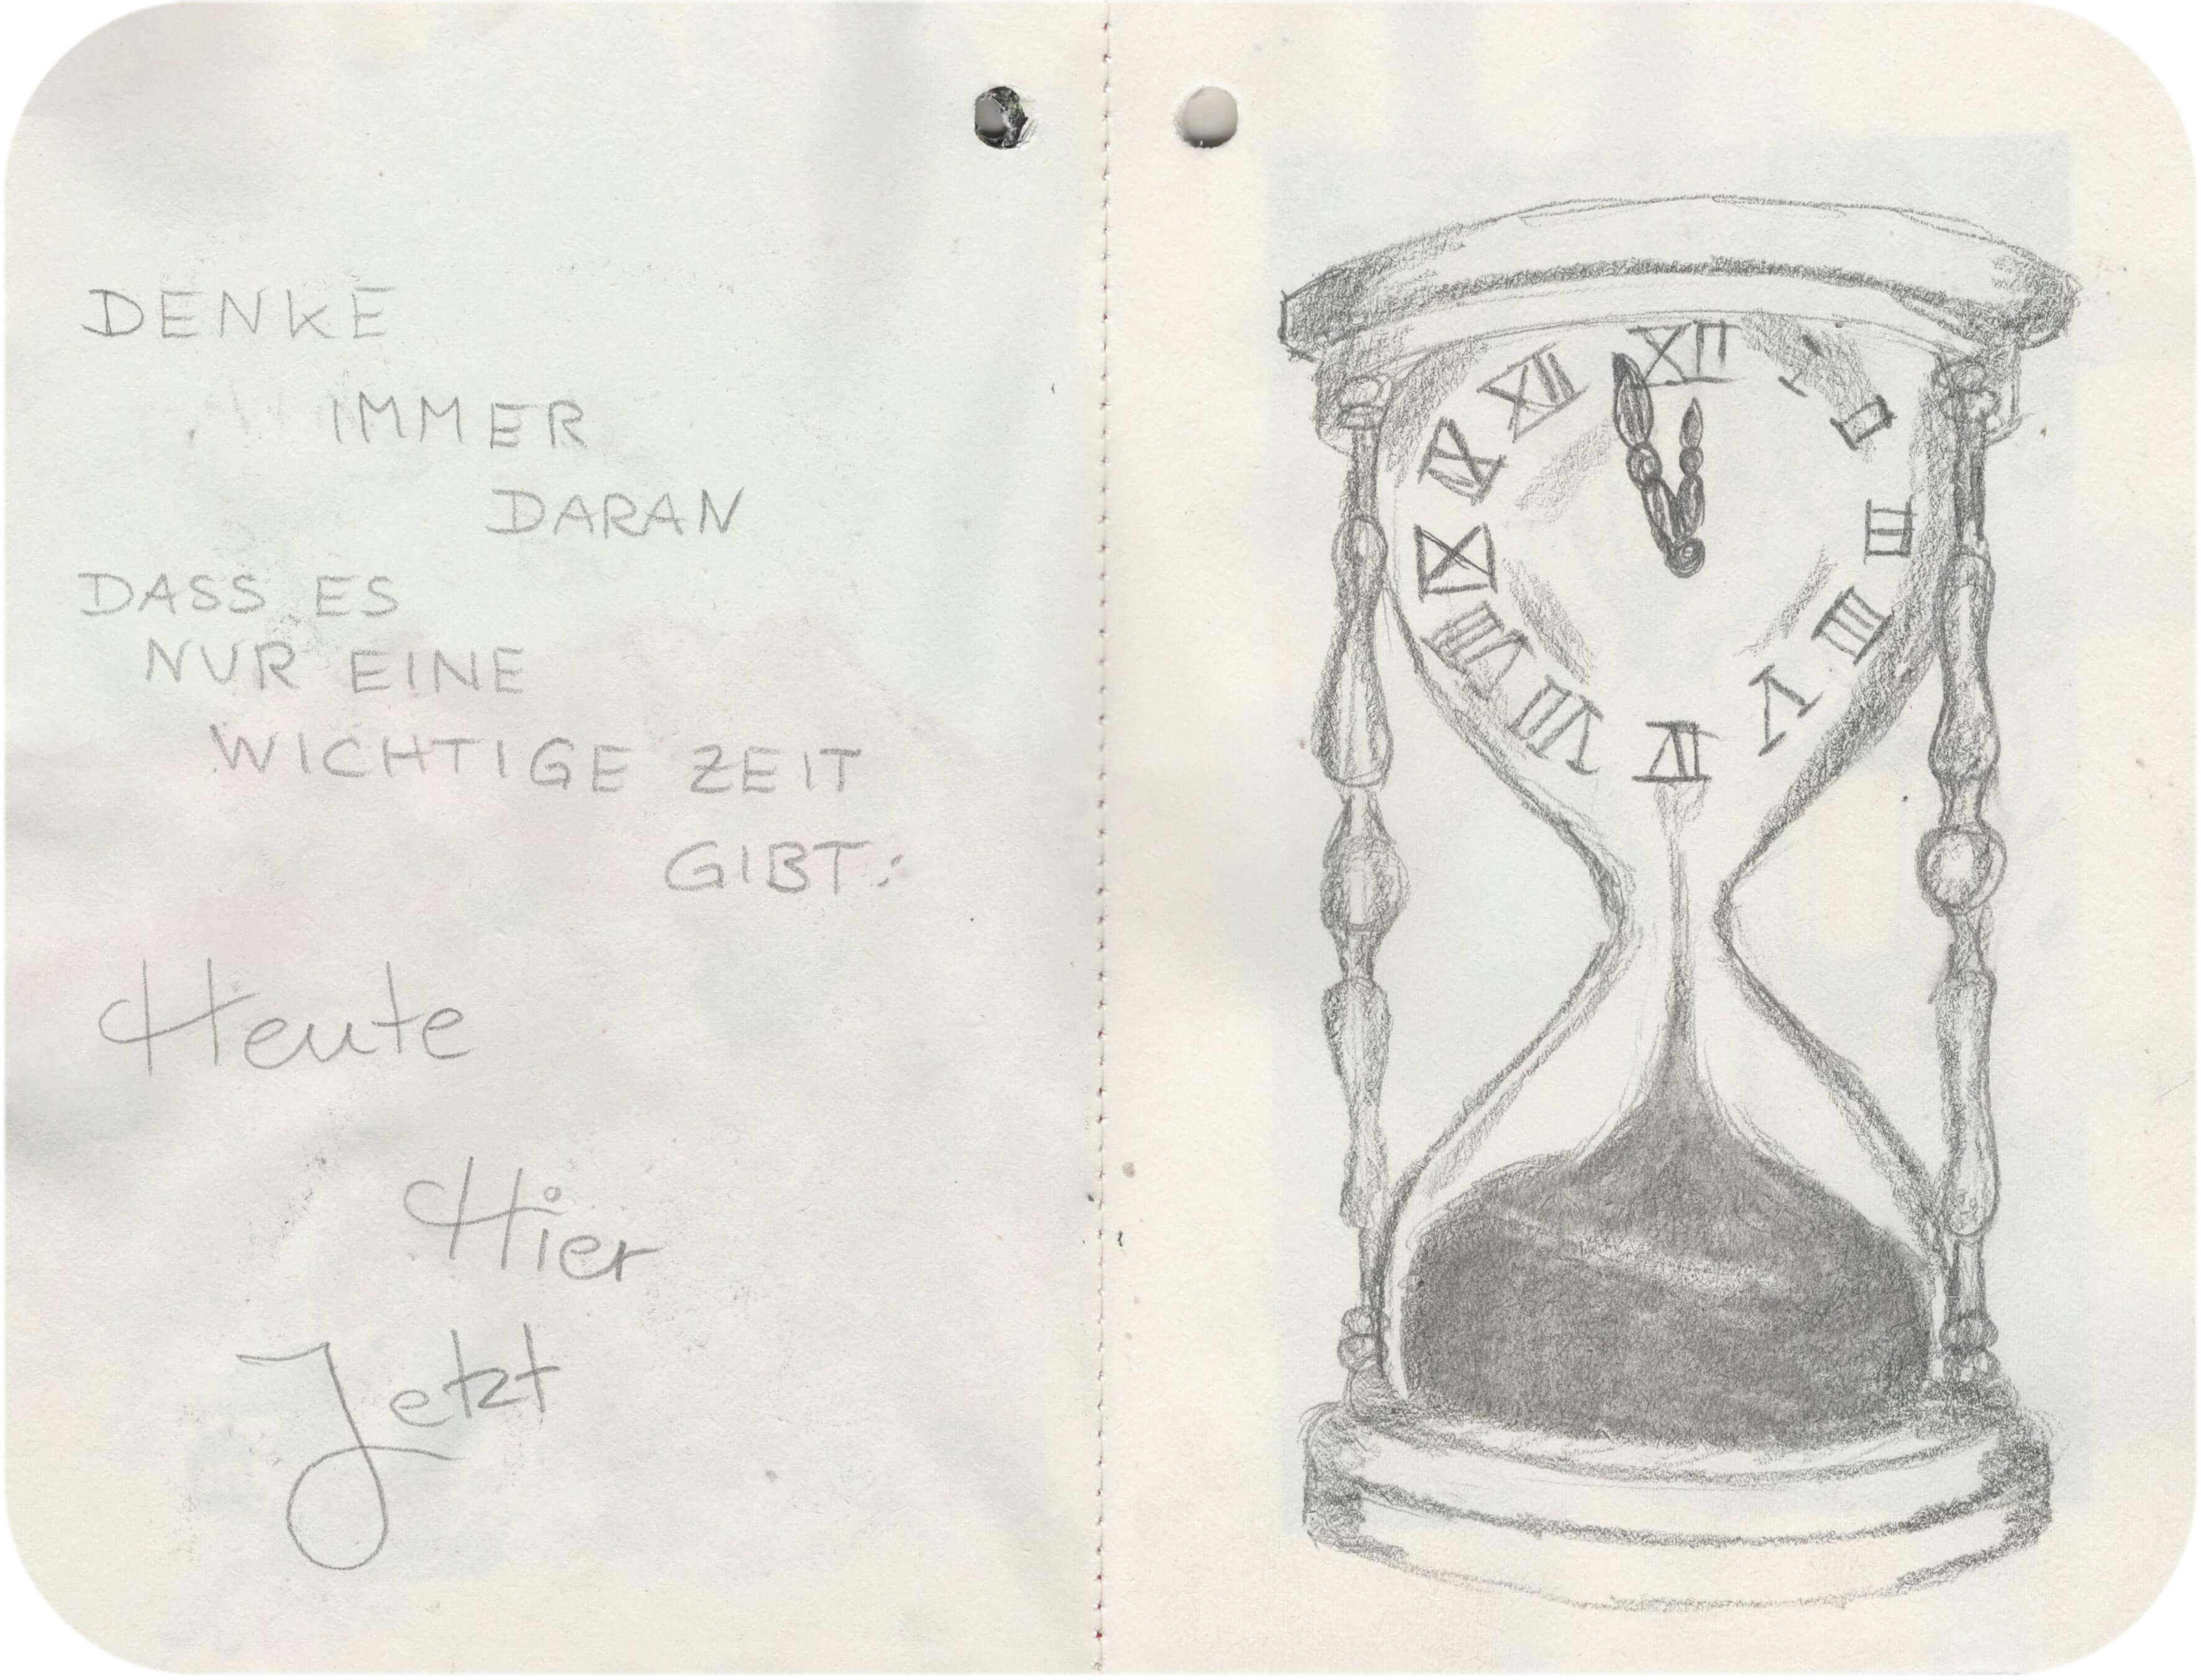 DENKE
IMMER
DARAN
DASS ES
NUR EINE
WICHTIGE ZEIT
GIBT:
Heute
Hier
Jetzt
XII
I
II
III
IIII
V
VI
VII
VIII
IX
XII